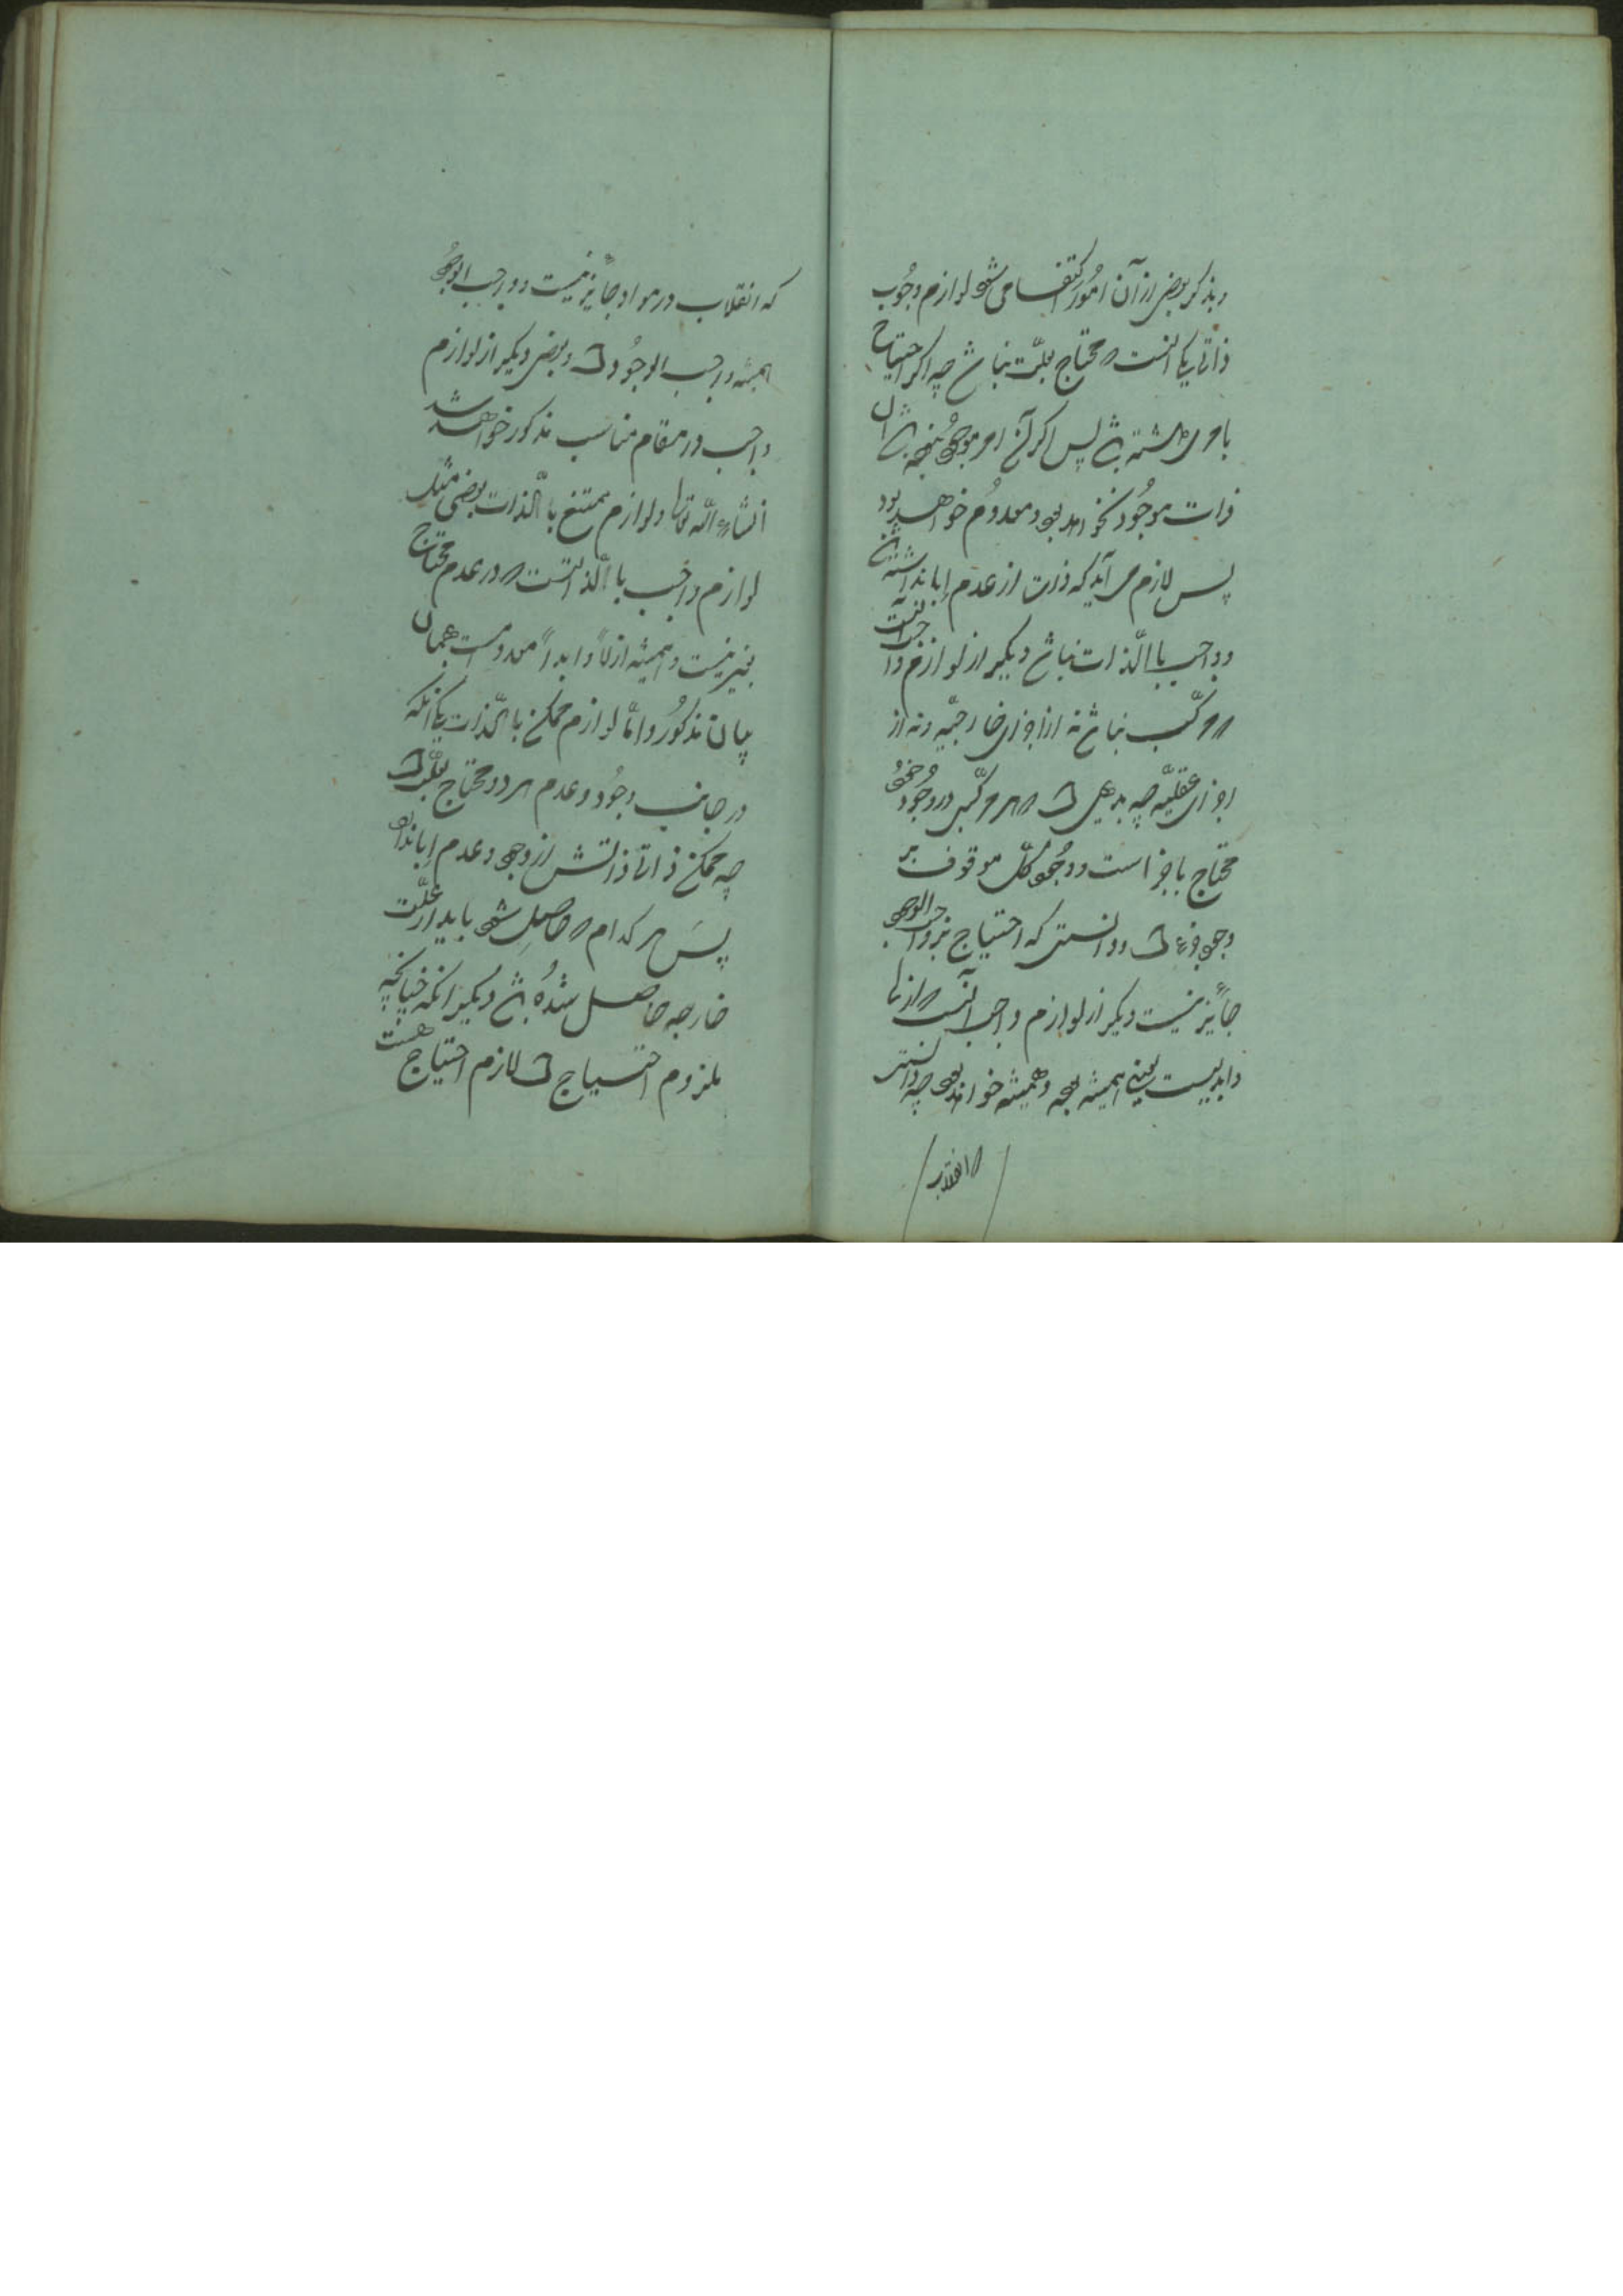 و بذکر بعضی از آن امور اکتفا می شود لوازم وجوب
ذاتی یکی آنست که محتاج بعلّت نباشد چه اگر احتیاج
بامری داشته باشد پس اگر آن امر موجود نبوده باشد آن
ذات موجود نخواهد بود و معدوم خواهد بود
پس لازم می آید که ذات از عدم إبا نداشته باشد
و واجب باالذّات نباشد دیگر از لوازم واجب آنست
که مرکّب نباشد نه از اجزای خارجیّه و نه از
اجزای عقلیّه چه بدیهی است که هر مرکّبی در وجود خود
محتاج باجزا است و وجود کلّ موقوف بر
وجود جزء است و دانستی که احتیاج بر واجب الوجود
جائز نیست دیگر از لوازم واجب آنست که ازلی
و ابدیست یعنی همیشه بوده و همیشه خواهد بود چه دانستی
که انقلاب
که انقلاب در مواد جائز نیست و واجب الوجود
همیشه واجب الوجود است و بعضی دیگر از لوازم
واجب در مقام مناسب مذکور خواهد شد
انشاء اللّه تعالی و لوازم ممتنع باالذّات بعضی مثل
لوازم واجب باالّذاتست که در عدم محتاج
بغیر نیست و همیشه ازلاً و ابداً معدومست بهمان
بیان مذکور و امّا لوازم ممکن باالّذات یکی آنکه
در جانب وجود و عدم هر دو محتاج بعلّت است
چه ممکن ذاتا ذاتش از وجود و عدم إبا ندارد
پس هر کدام که حاصل شود باید از علّت
خارجه حاصل شده باشد دیگر آنکه چنانچه
ملزوم احتیاج است لازم احتیاج هست